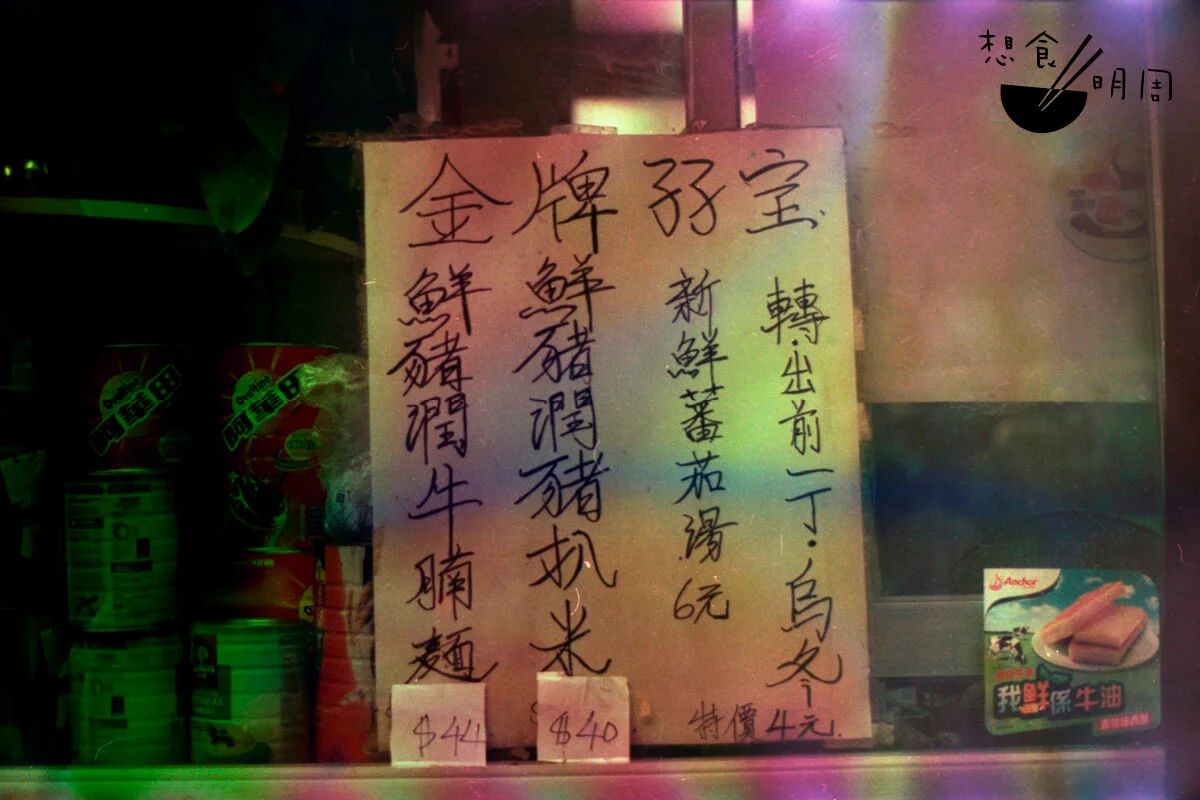 想食明周
金牌孖宝
鮮豬潤牛腩麵
$44
鮮豬潤豬扒米
$40
新鮮蕃茄湯6元
轉·出前一丁·烏冬
特價4元.
阿華田
阿華田
Anchor
我鮮係牛油